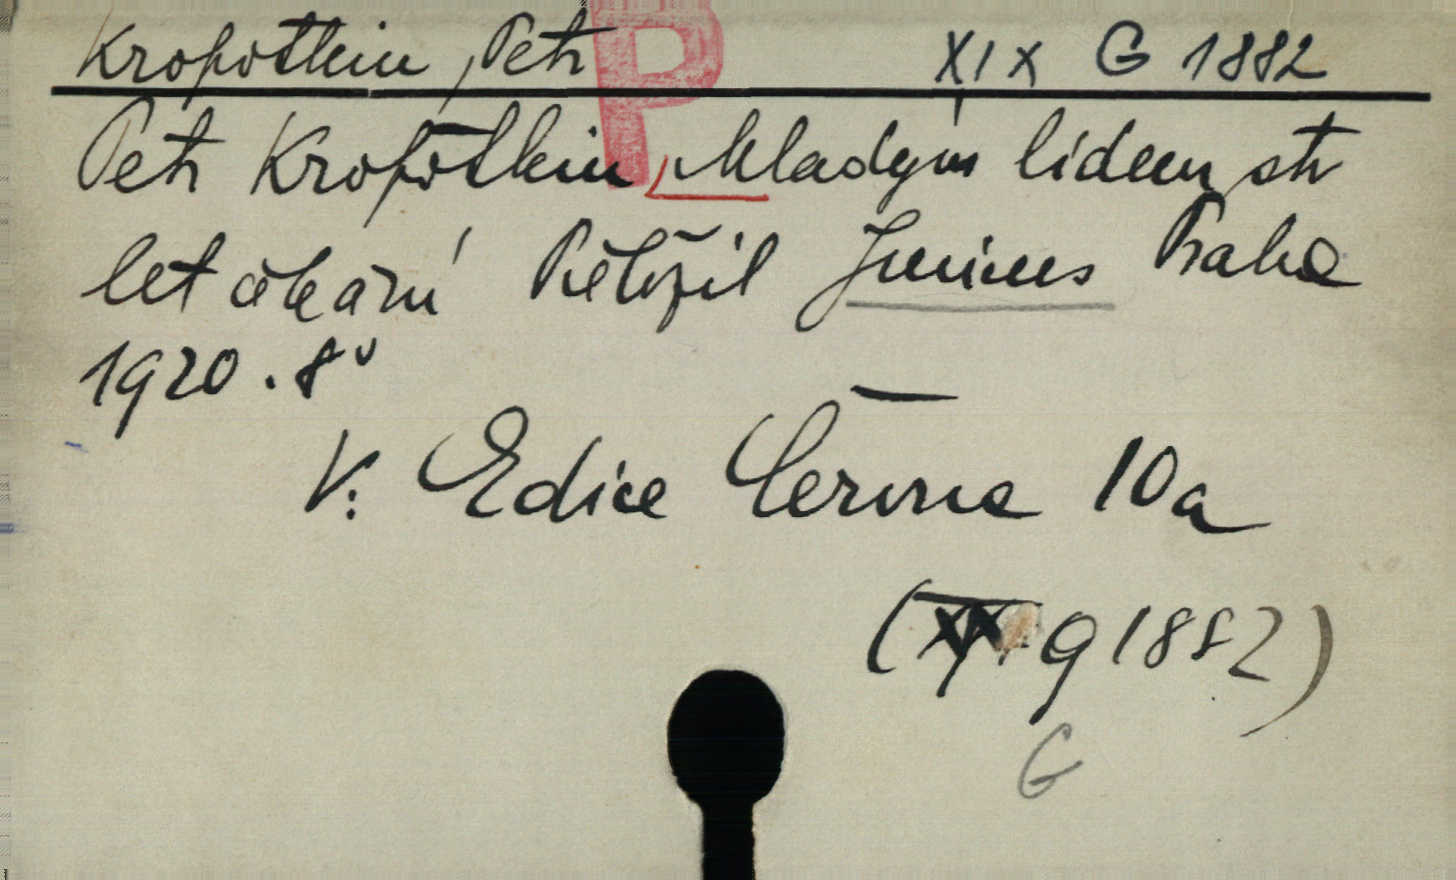 Kropotkin, Petr P XIX G 1882
Petr Kropotkin, Mladým lidem, str
let Přeložil Junius Praha
1920. 8°
V: Edice Června 10a
( g 1882)
G